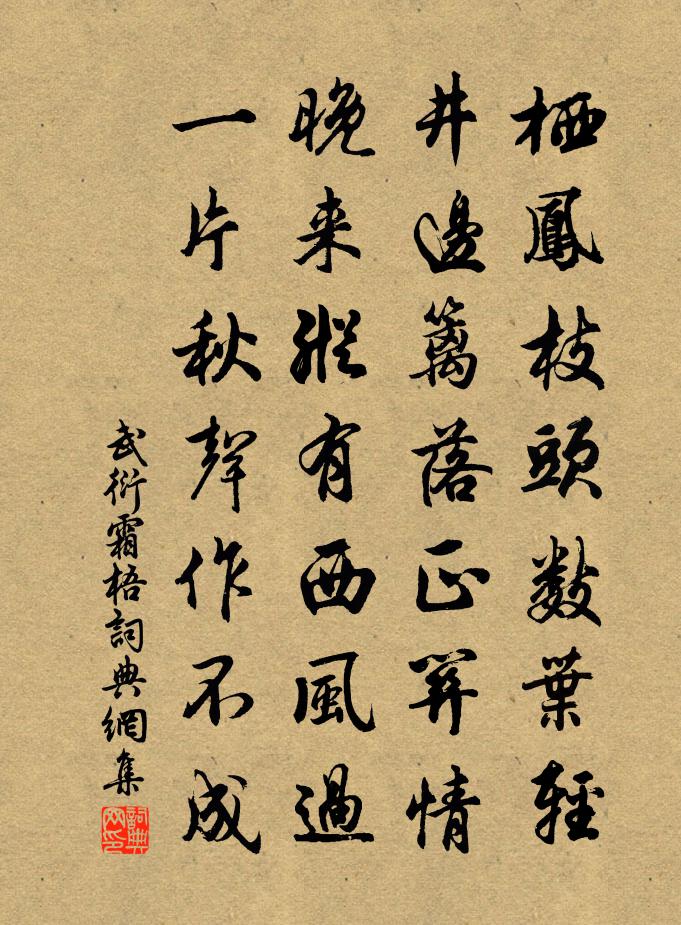 栖鳳枝頭數葉輕
井邊篱落正關情
晚来縱有西風過
一片秋聲作不成
武衍霜梧詞典網集
詞典网印